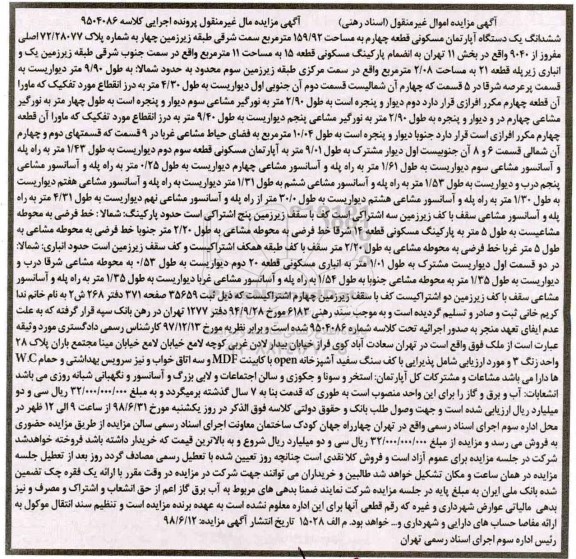 آگهی مزایده اموال غیرمنقول (اسناد رهنی) آگهی مزایده مال غیرمنقول پرونده اجرایی کلاسه ۹۵۰۴۰۸۶
ششدانگ یک دستگاه آپارتمان مسکونی قطعه چهارم به مساحت ۱۵۹/۹۲ مترمربع سمت شرقی طبقه زیرزمین چهار به شماره پلاک ۷۲/۲۸۰۷۷ اصلی
مفروز از ۹۰۴۰ واقع در بخش ۱۱ تهران به انضمام پارکینگ مسکونی قطعه ۱۵ به مساحت ۱۱ مترمربع واقع در سمت جنوب شرقی طبقه زیرزمین یک و
انباری زیرپله قطعه ۲۱ به مساحت ۲/۰۸ مترمربع واقع در سمت مرکزی طبقه زیرزمین سوم محدود به حدود شمالا: به طول ۹/۹۰ متر دیواریست به
قسمت پرعرصه شرقا در ۵ قسمت که چهارم آن شمالیست قسمت دوم آن جنوبی اول دیواریست به طول ۴/۳۰ متر به درز انقطاع مورد تفکیک که ماورا
آن قطعه چهارم مکرر افرازی قرار دارد دوم دیوار و پنجره است به طول ۲/۹۰ متر به نورگیر مشاعی سوم دیوار و پنجره است به طول چهار متر به نورگیر
مشاعی چهارم در و دیوار و پنجره به طول ۲/۹۰ متر به نورگیر مشاعی پنجم دیواریست به طول ۹/۴۰ متر به درز انقطاع مورد تفکیک که ماورا آن قطعه
چهارم مکرر افرازی است قرار دارد جنوبا دیوار و پنجره است به طول ۱۰/۰۴ مترمربع به فضای حیاط مشاعی غربا در ۹ قسمت که قسمتهای دوم و چهارم
آن شمالی قسمت ۶ و ۸ آن جنوبیست اول دیوار مشترک به طول ۹/۰۱ متر به آپارتمان مسکونی قطعه سوم دوم دیواریست به طول ۱/۴۳ متر به راه پله
و آسانسور مشاعی سوم دیواریست به طول ۱/۶۱ متر به راه پله و آسانسور مشاعی چهارم دیواریست به طول ۰/۲۵ متر به راه پله و آسانسور مشاعی
پنجم درب و دیواریست به طول ۱/۵۳ متر به راه پله و آسانسور مشاعی ششم به طول ۱/۳۱ متر دیواریست به راه پله و آسانسور مشاعی هفتم دیواریست
به طول ۱/۳۰ متر به راه پله و آسانسور مشاعی هشتم دیواریست به طول ۳۰/۰ متر از راه پله و آسانسور مشاعی نهم دیواریست به طول ۴/۳۱ متر به راه
پله و آسانسور مشاعی سقف با کف زیرزمین سه اشتراکی کف با سقف زیرزمین پنج اشتراکی است حدود پارکینگ: شمالا: خط فرضی به محوطه
مشاعیست به طول ۵ متر به پارکینگ مسکونی قطعه ۱۴ شرقا خط فرضی به محوطه مشاعی به طول ۲/۲۰ متر جنوبا خط فرضی به محوطه مشاعی به
طول ۵ متر غربا خط فرضی به محوطه مشاعی به طول ۲/۲۰ متر سقف با کف طبقه همکف اشتراکیست و کف سقف زیرزمین است حدود انباری: شمالا:
در دو قسمت اول دیواریست مشترک به طول ۱/۰۱ متر به انباری مسکونی قطعه ۲۰ دوم دیواریست به طول ۰/۵۳ به محوطه مشاعی شرقا درب و
دیواریست به طول ۱/۳۵ متر به محوطه مشاعی جنوبا به طول ۱/۵۴ به راه پله و آسانسور مشاعی غربا دیواریست به طول ۱/۳۵ متر به راه پله و آسانسور
مشاعی سقف با کف زیرزمین دو اشتراکیست کف با سقف زیرزمین چهارم اشتراکیست که ذیل ثبت ۳۵۶۵۹ صفحه ۳۷۱ دفتر ۲۶۸ ش۲ به نام خانم ندا
کریم خانی ثبت و صادر و تسلیم گردیده است و به موجب سند رهنی ۶۱۸۳ مورخ ۹۴/۱/۲۸ دفتر ۱۲۷۷ تهران در رهن بانک سپه قرار گرفته که به علت
عدم ایفای تعهد منجر به صدور اجرائیه تحت کلاسه شماره ۹۵۰۴۰۸۶ شده است و برابر نظریه مورخ ۹۷/۱۲/۱۳ کارشناس رسمی دادگستری مورد وثیقه
عبارت است از ملک فوق واقع است در تهران سعادت آباد کوی فراز خیابان بیدار لادن غربی کوچه لامع خیابان لامع خیابان مینا مجتمع باران پلاک ۲۸
واحد زنگ ۳ و مورد ارزیابی شامل پذیرایی با کف سنگ سفید آشپزخانه open با کابینت MDF و سه اتاق خواب و نیز سرویس بهداشتی و حمام W.C
ها دارا می باشد مشاعات و مشترکات کل آپارتمان: استخر و سونا و جکوزی و سالن اجتماعات و لابی بزرگ و آسانسور و نگهبانی شبانه روزی می باشد
انشعابات: آب و برق و گاز را برای این واحد منصوب است به طوری که قدمت بنا به ۷ سال گذشته برمیگردد و به مبلغ ۳۲/۰۰۰/۰۰۰/۰۰۰ ریال سی و دو
میلیارد ریال ارزیابی شده است و جهت وصول طلب بانک و حقوق دولتی کلاسه فوق الذکر در روز یکشنبه مورخ ۹۸/۶/۳۱ از ساعت ۹ الی ۱۲ ظهر در
محل اداره سوم اجرای اسناد رسمی واقع در تهران چهارراه جهان کودک ساختمان معاونت اجرای اسناد رسمی سالن مزایده از طریق مزایده حضوری
به فروش می رسد و مزایده از مبلغ ۳۲/۰۰۰/۰۰۰/۰۰۰ ریال سی و دو میلیارد ریال شروع و به بالاترین قیمت که خریدار داشته باشد فروخته خواهدشد
شرکت در جلسه مزایده برای عموم آزاد است و فروش کلا نقدی است چنانچه روز تعیین شده با تعطیل رسمی مصادف گردد روز بعد از تعطیل جلسه
مزایده در همان ساعت و مکان تشکیل خواهد شد طالبین و خریداران می توانند جهت شرکت در مزایده در وقت مقرر با ارائه یک فقره چک تضمین
شده بانک ملی ایران به مبلغ پایه در جلسه مزایده شرکت نمایند ضمنا بدهی های مربوط به آب برق گاز اعم از حق انشعاب و اشتراک و مصرف و نیز
بدهی مالیاتی عوارض شهرداری و غیره که رقم قطعی آنها برای این اداره معلوم نشده است به عهده برنده مزایده است و تنظیم سند انتقال موکول به
ارائه مفاصا حساب های دارایی و شهرداری و... خواهد بود. م الف ۱۵۰۲۸ تاریخ انتشار آگهی مزایده: ۹۸/۶/۱۲
رئیس اداره سوم اجرای اسناد رسمی تهران